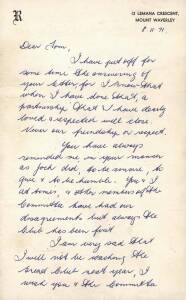 R
13 LEMANA CRESCENT,
MOUNT WAVERLEY
8.11.71
Dear Tom,
I have put off for
some time the answering of
your letter for I know that
when I have done that, a
partnership that I have dearly
loved & respected will close.
Never our friendship or respect.
You have always
reminded me in your manner
as Jock did, to be sincere to
give & to be humble. You & I
at times, & other members of the
Committee have had our
disagreements but always the
Club has been first.
I am very sad that
I will not be coaching the
great Club next year, I
wish you & the Committee